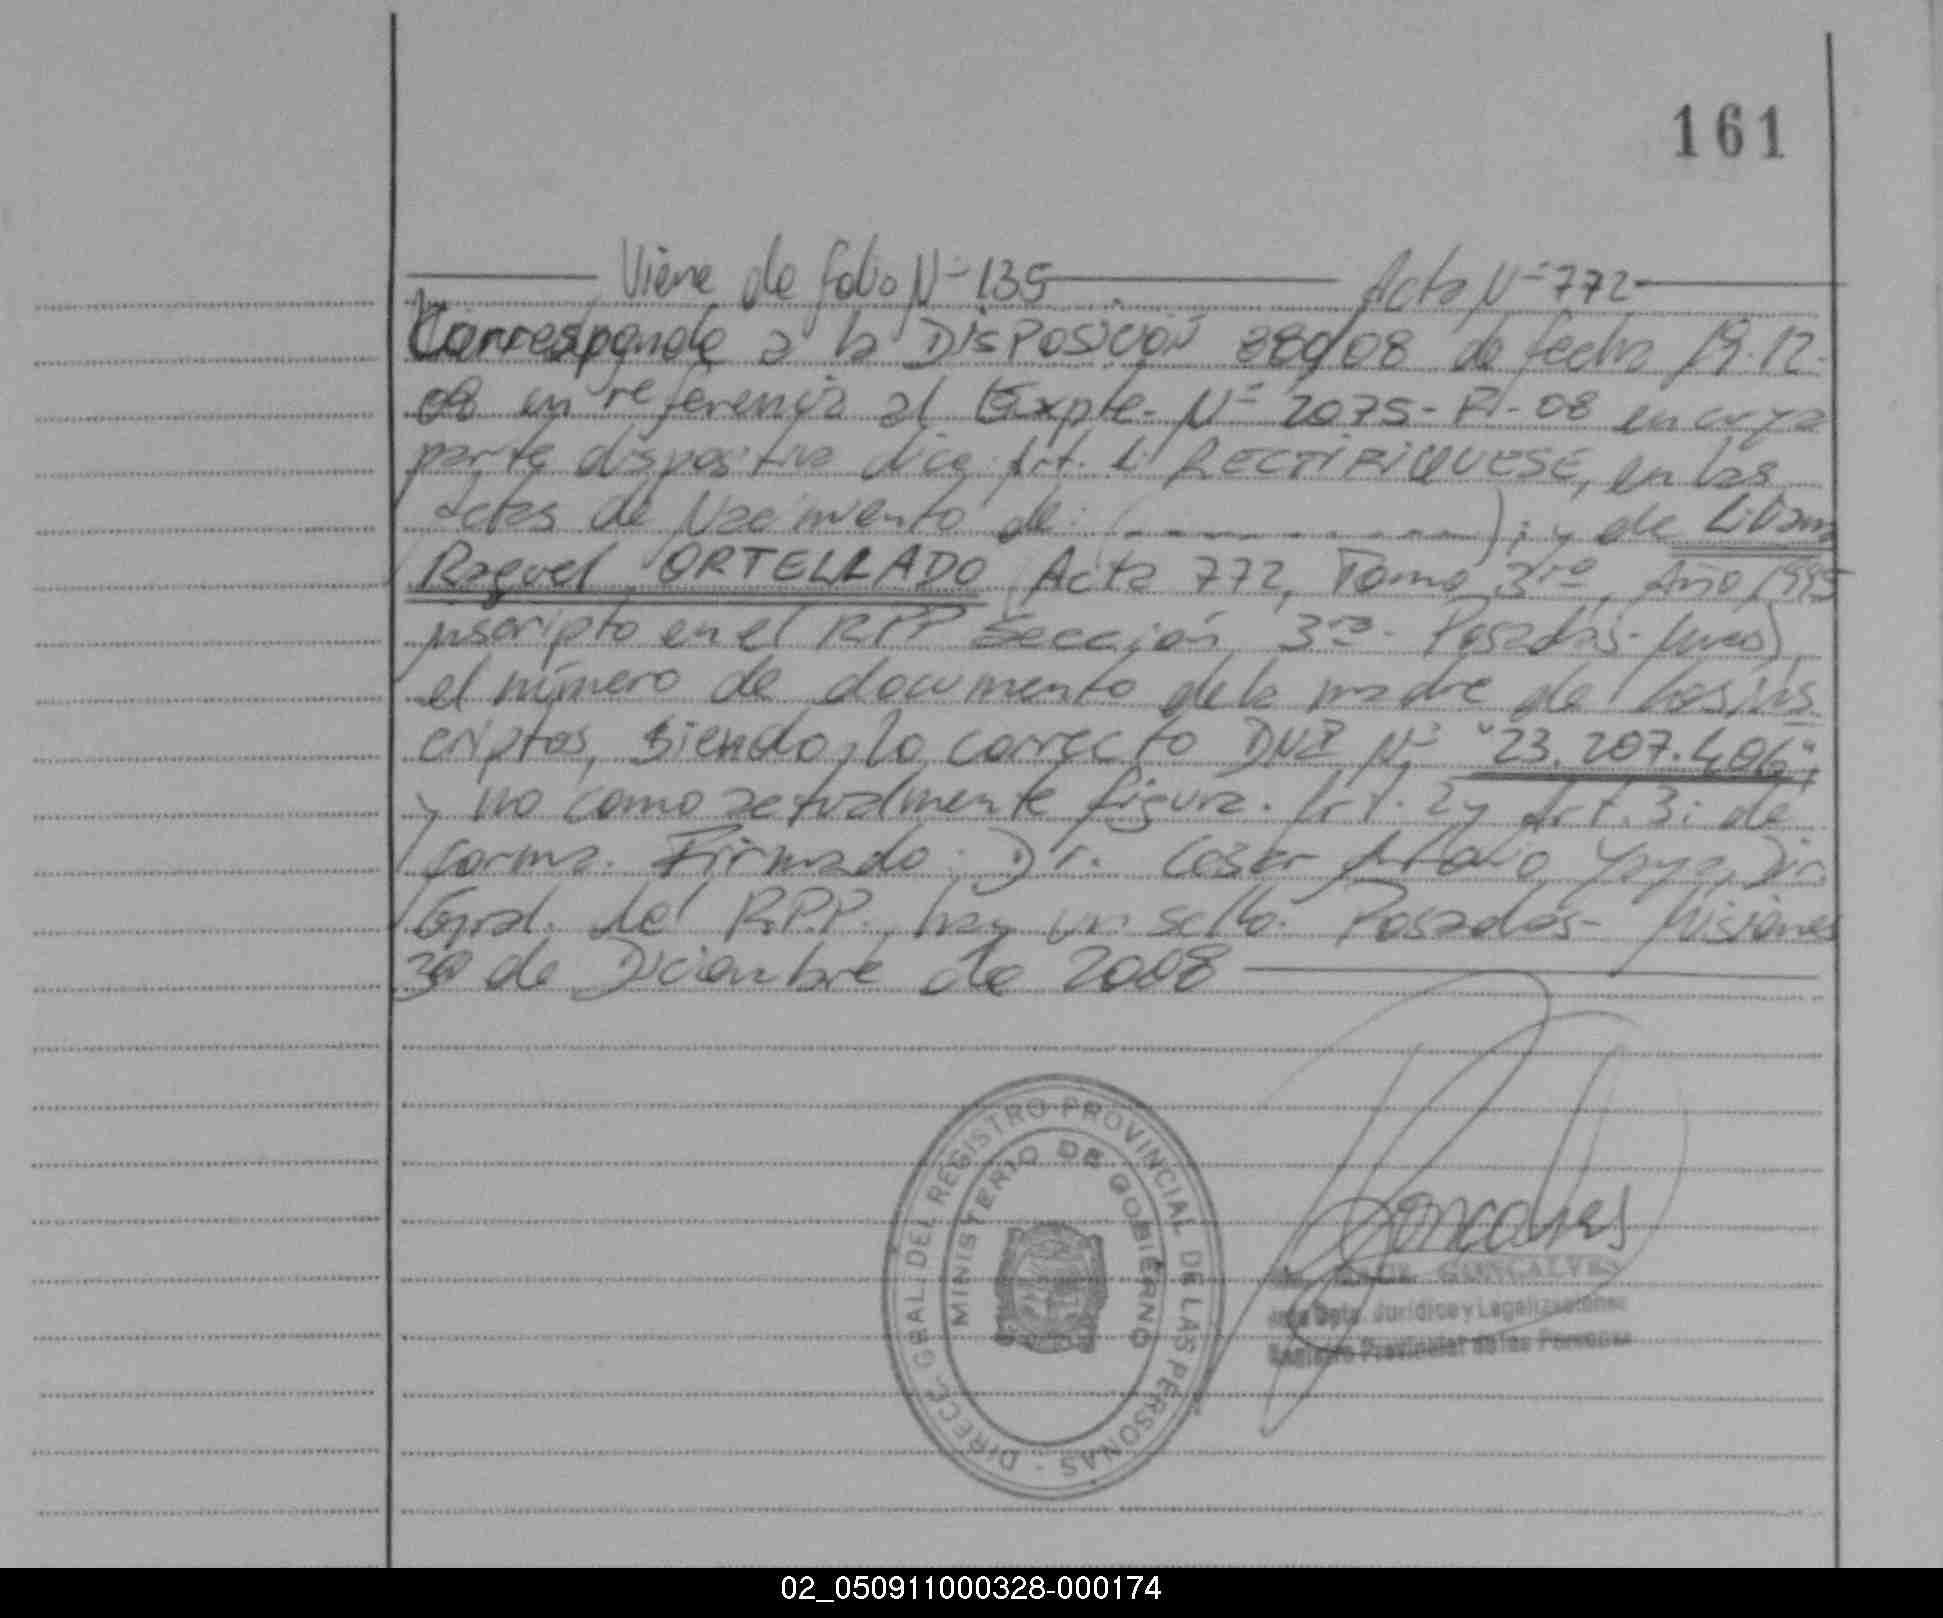 161
Viene de folio Nº 135 Acta Nº 772
Corresponde a la Disposición 280/08 de fecha 19.12.
08 en referencia al Expte. Nº 2075-R-08 en cuya
parte dispositiva dice: Art. 1: RECTIFIQUESE, en las
actas de Nacimiento de: ( - - - - - - - - - ); y de Liliana
Raquel ORTELLADO Acta 772, Tomo 3ro, Año 1995
inscripto en el RPP Sección 3ra. Posadas
el número de documento de la madre de los ins
criptos, siendo lo correcto DNI Nº "23.207.406",
y no como actualmente figura. Art. 2 y Art. 3: de
forma. Firmado: Dr. Cesar Yaya, Dir.
Gral. del R.P.P., hay un sello. Posadas - Misiones
30 de Diciembre de 2008
DIRECC. GRAL. DEL REGISTRO PROVINCIAL DE LAS PERSONAS -
MINISTERIO DE GOBIERNO
Goncalves
GONCALVES
Jefe Dpto. Jurídico y Legalizaciones
Registro Provincial de las Personas
02_050911000328-000174